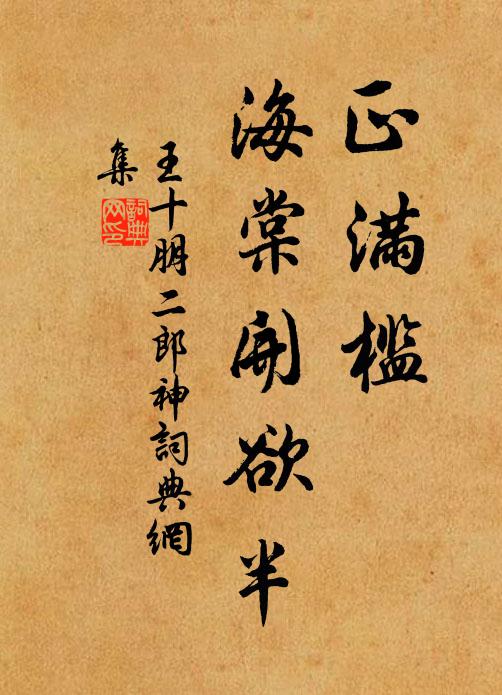 正滿檻
海棠開欲半
王十朋二郎神詞典網
集
詞典網印